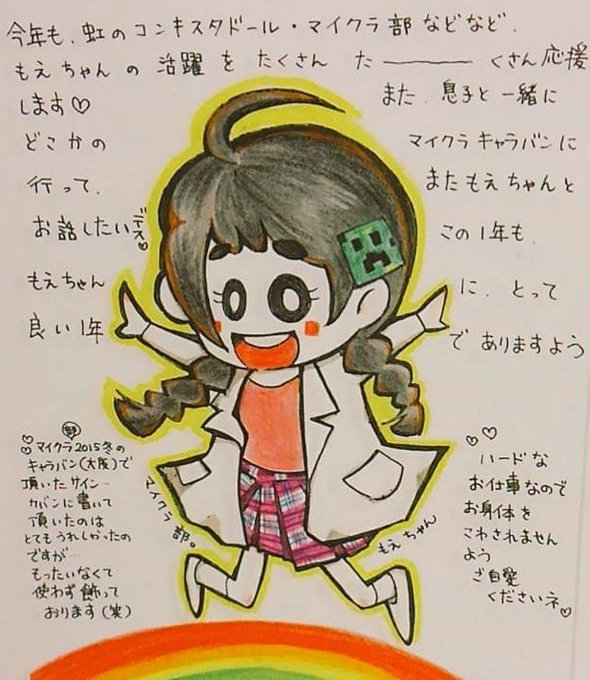 今年も、虹のコンキスタドール・マイクラ部などなど、
もえちゃんの 活躍を たくさん た―――くさん応援
します♡ また、息子と一緒に
どこかの マイクラキャラバンに
行って、 またもえちゃんと
お話したいデス♡ この1年も、
もえちゃん に、とって
良い1年 でありますよう
♡♡マイクラ2015冬の
キャラバン(大阪)で
頂いたサイン…
カバンに書いて
頂いたのは
とてもうれしかったの
ですが…
もったいなくて
使わず飾って
おります(笑)
マイクラ部。
もえちゃん
♡♡
ハードな
お仕事なので
お身体を
こわされません
よう
ご自愛
くださいネ♡